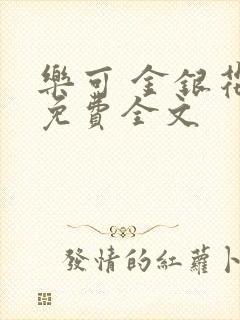 樂可 金銀花
免費全文
發情的紅蘿卜